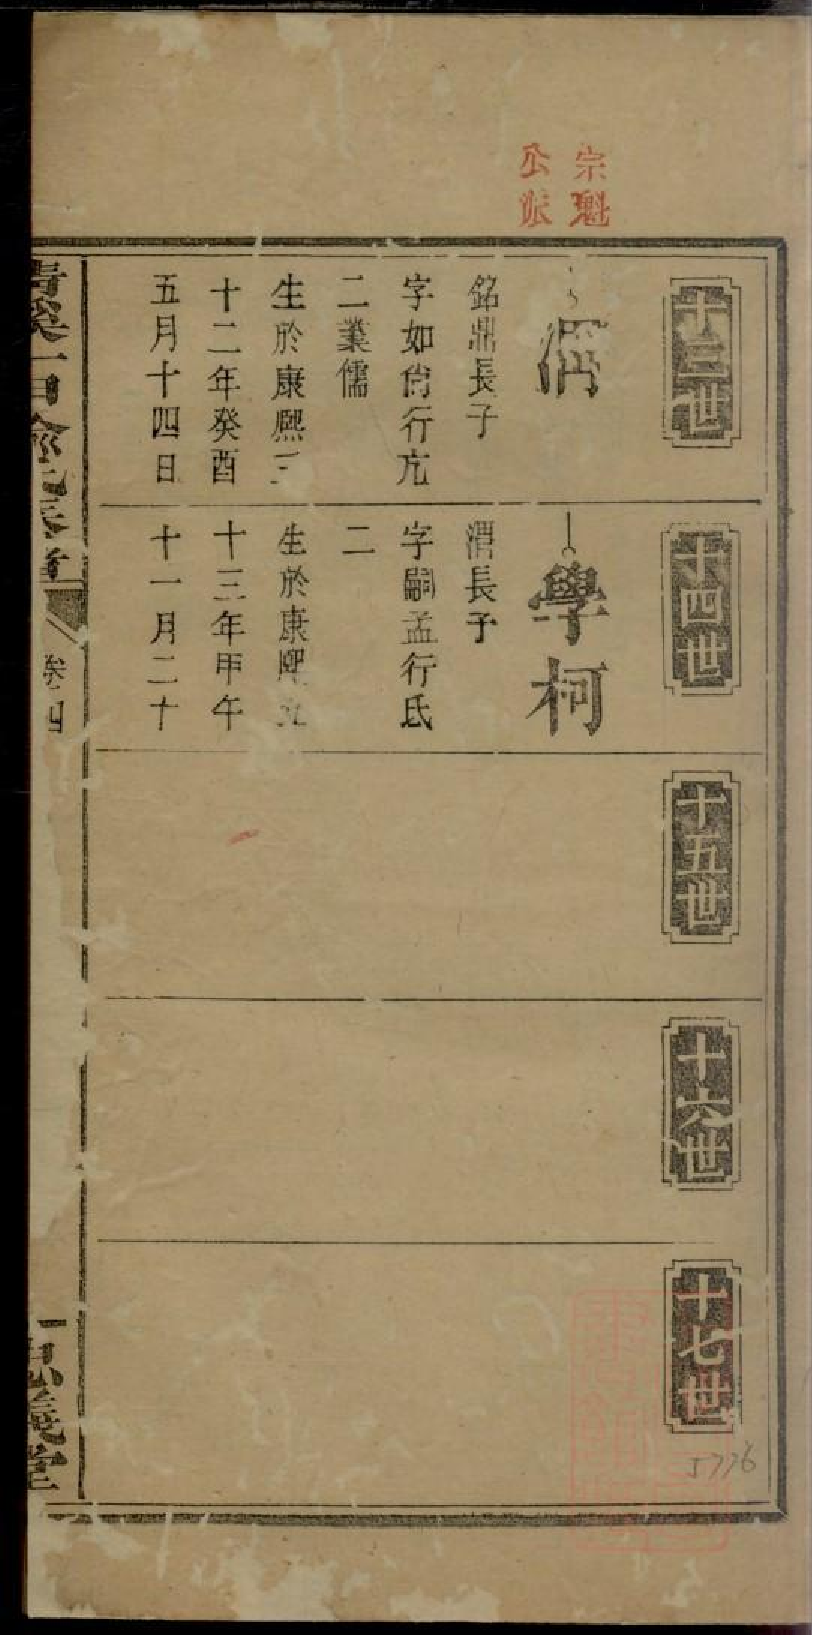 宗魁
公派
十三世
渭
銘鼎長子
字如尙行亢
二業儒
生於康熈三
十二年癸酉
五月十四日
十四世
學柯
渭長子
字嗣孟行氐
二
生於康熈五
十三年甲午
十一月二十
十五世
十六世
十七世
5776
卷四
義堂